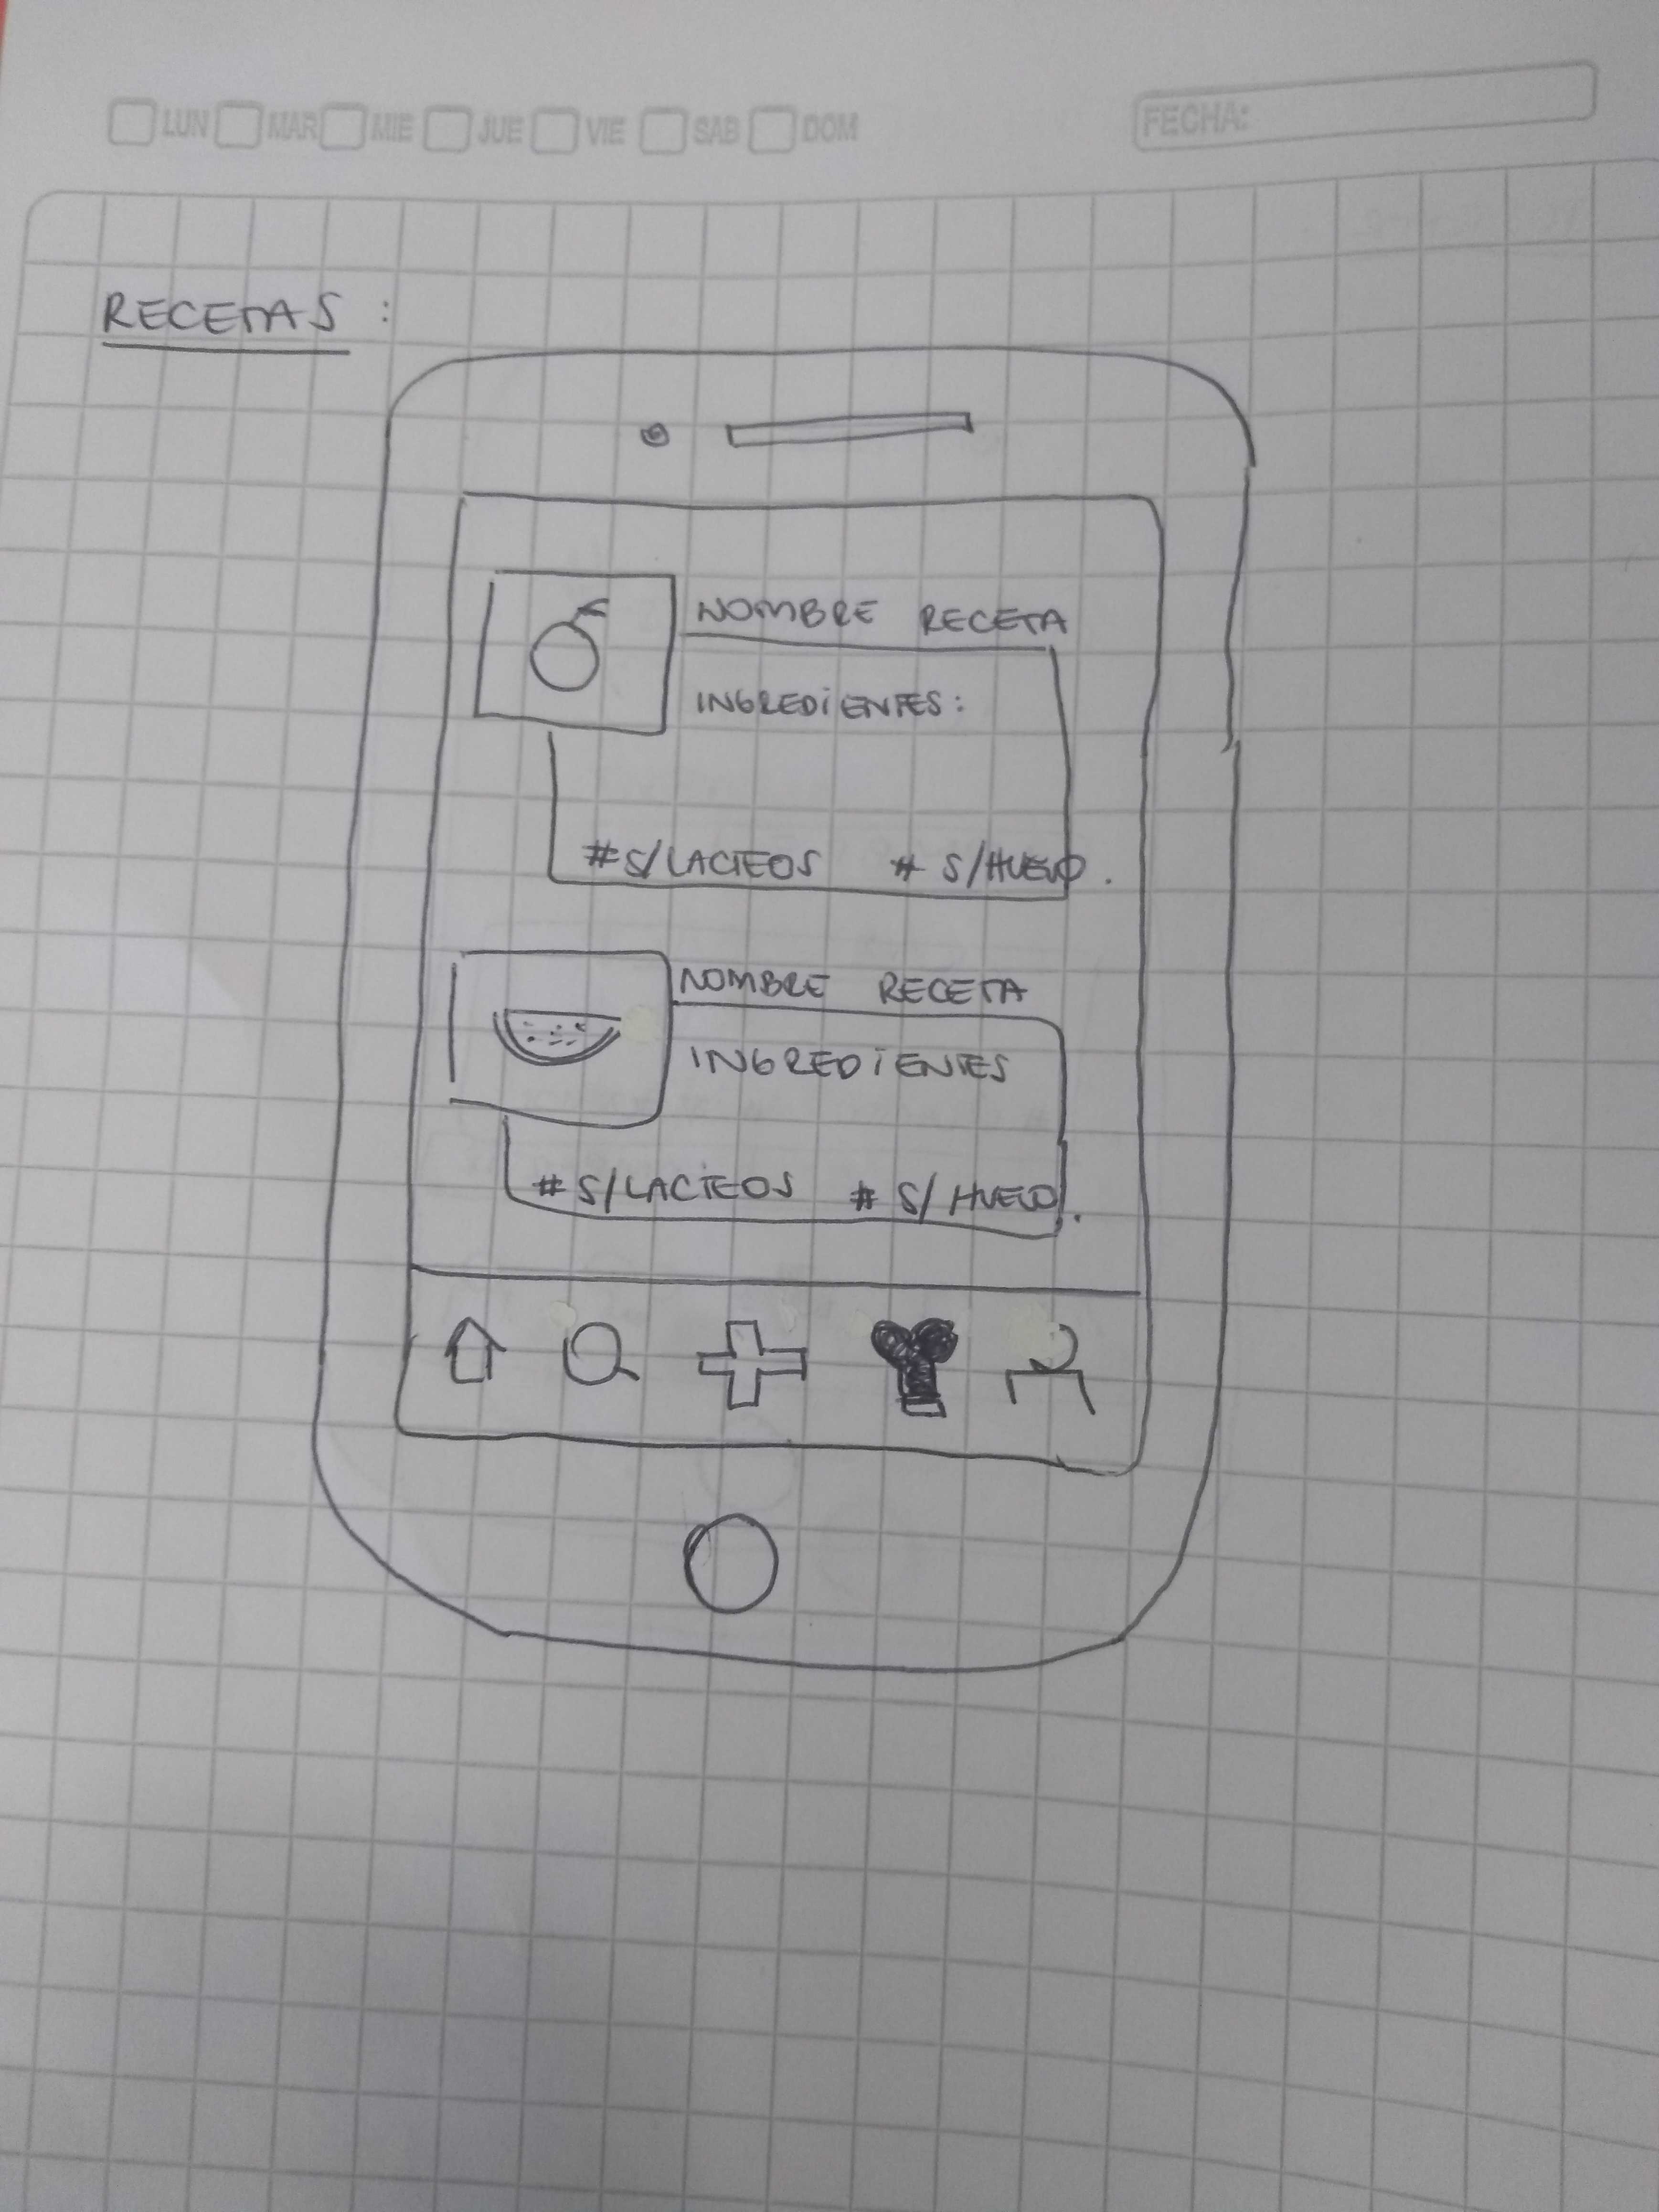 LUN MAR MIE JUE VIE SAB DOM FECHA:
RECETAS :
NOMBRE RECETA
INGREDIENTES:
#S/LACTEOS # S/HUEVO.
NOMBRE RECETA
INGREDIENTES
# S/LACTEOS # S/HUEVO.